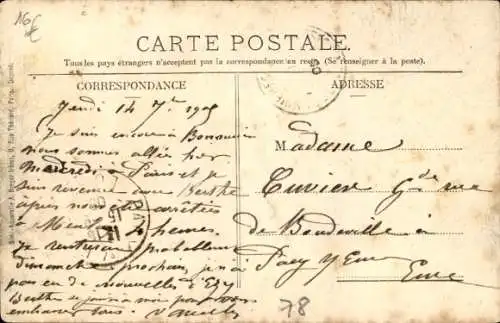 16 €
CARTE POSTALE
Tous les pays étrangers n'acceptent pas la correspondance au recto (Se renseigner à la poste).
CORRESPONDANCE
ADRESSE
Jeudi 14 7bre 1905
Je suis encore à
nous sommes allés hier
mercredi à Paris et je
suis revenue avec Berthe
après nous être arrêtées
à Meulan
Je rentrerai probablement
dimanche prochain je n'ai
pas eu de nouvelles d'Ezy
Berthe se joint à moi pour vous
embrasser tous.
Madame
Cuvier Gde rue
de Boudeville à
Pacy s/ Eure
Eure
78